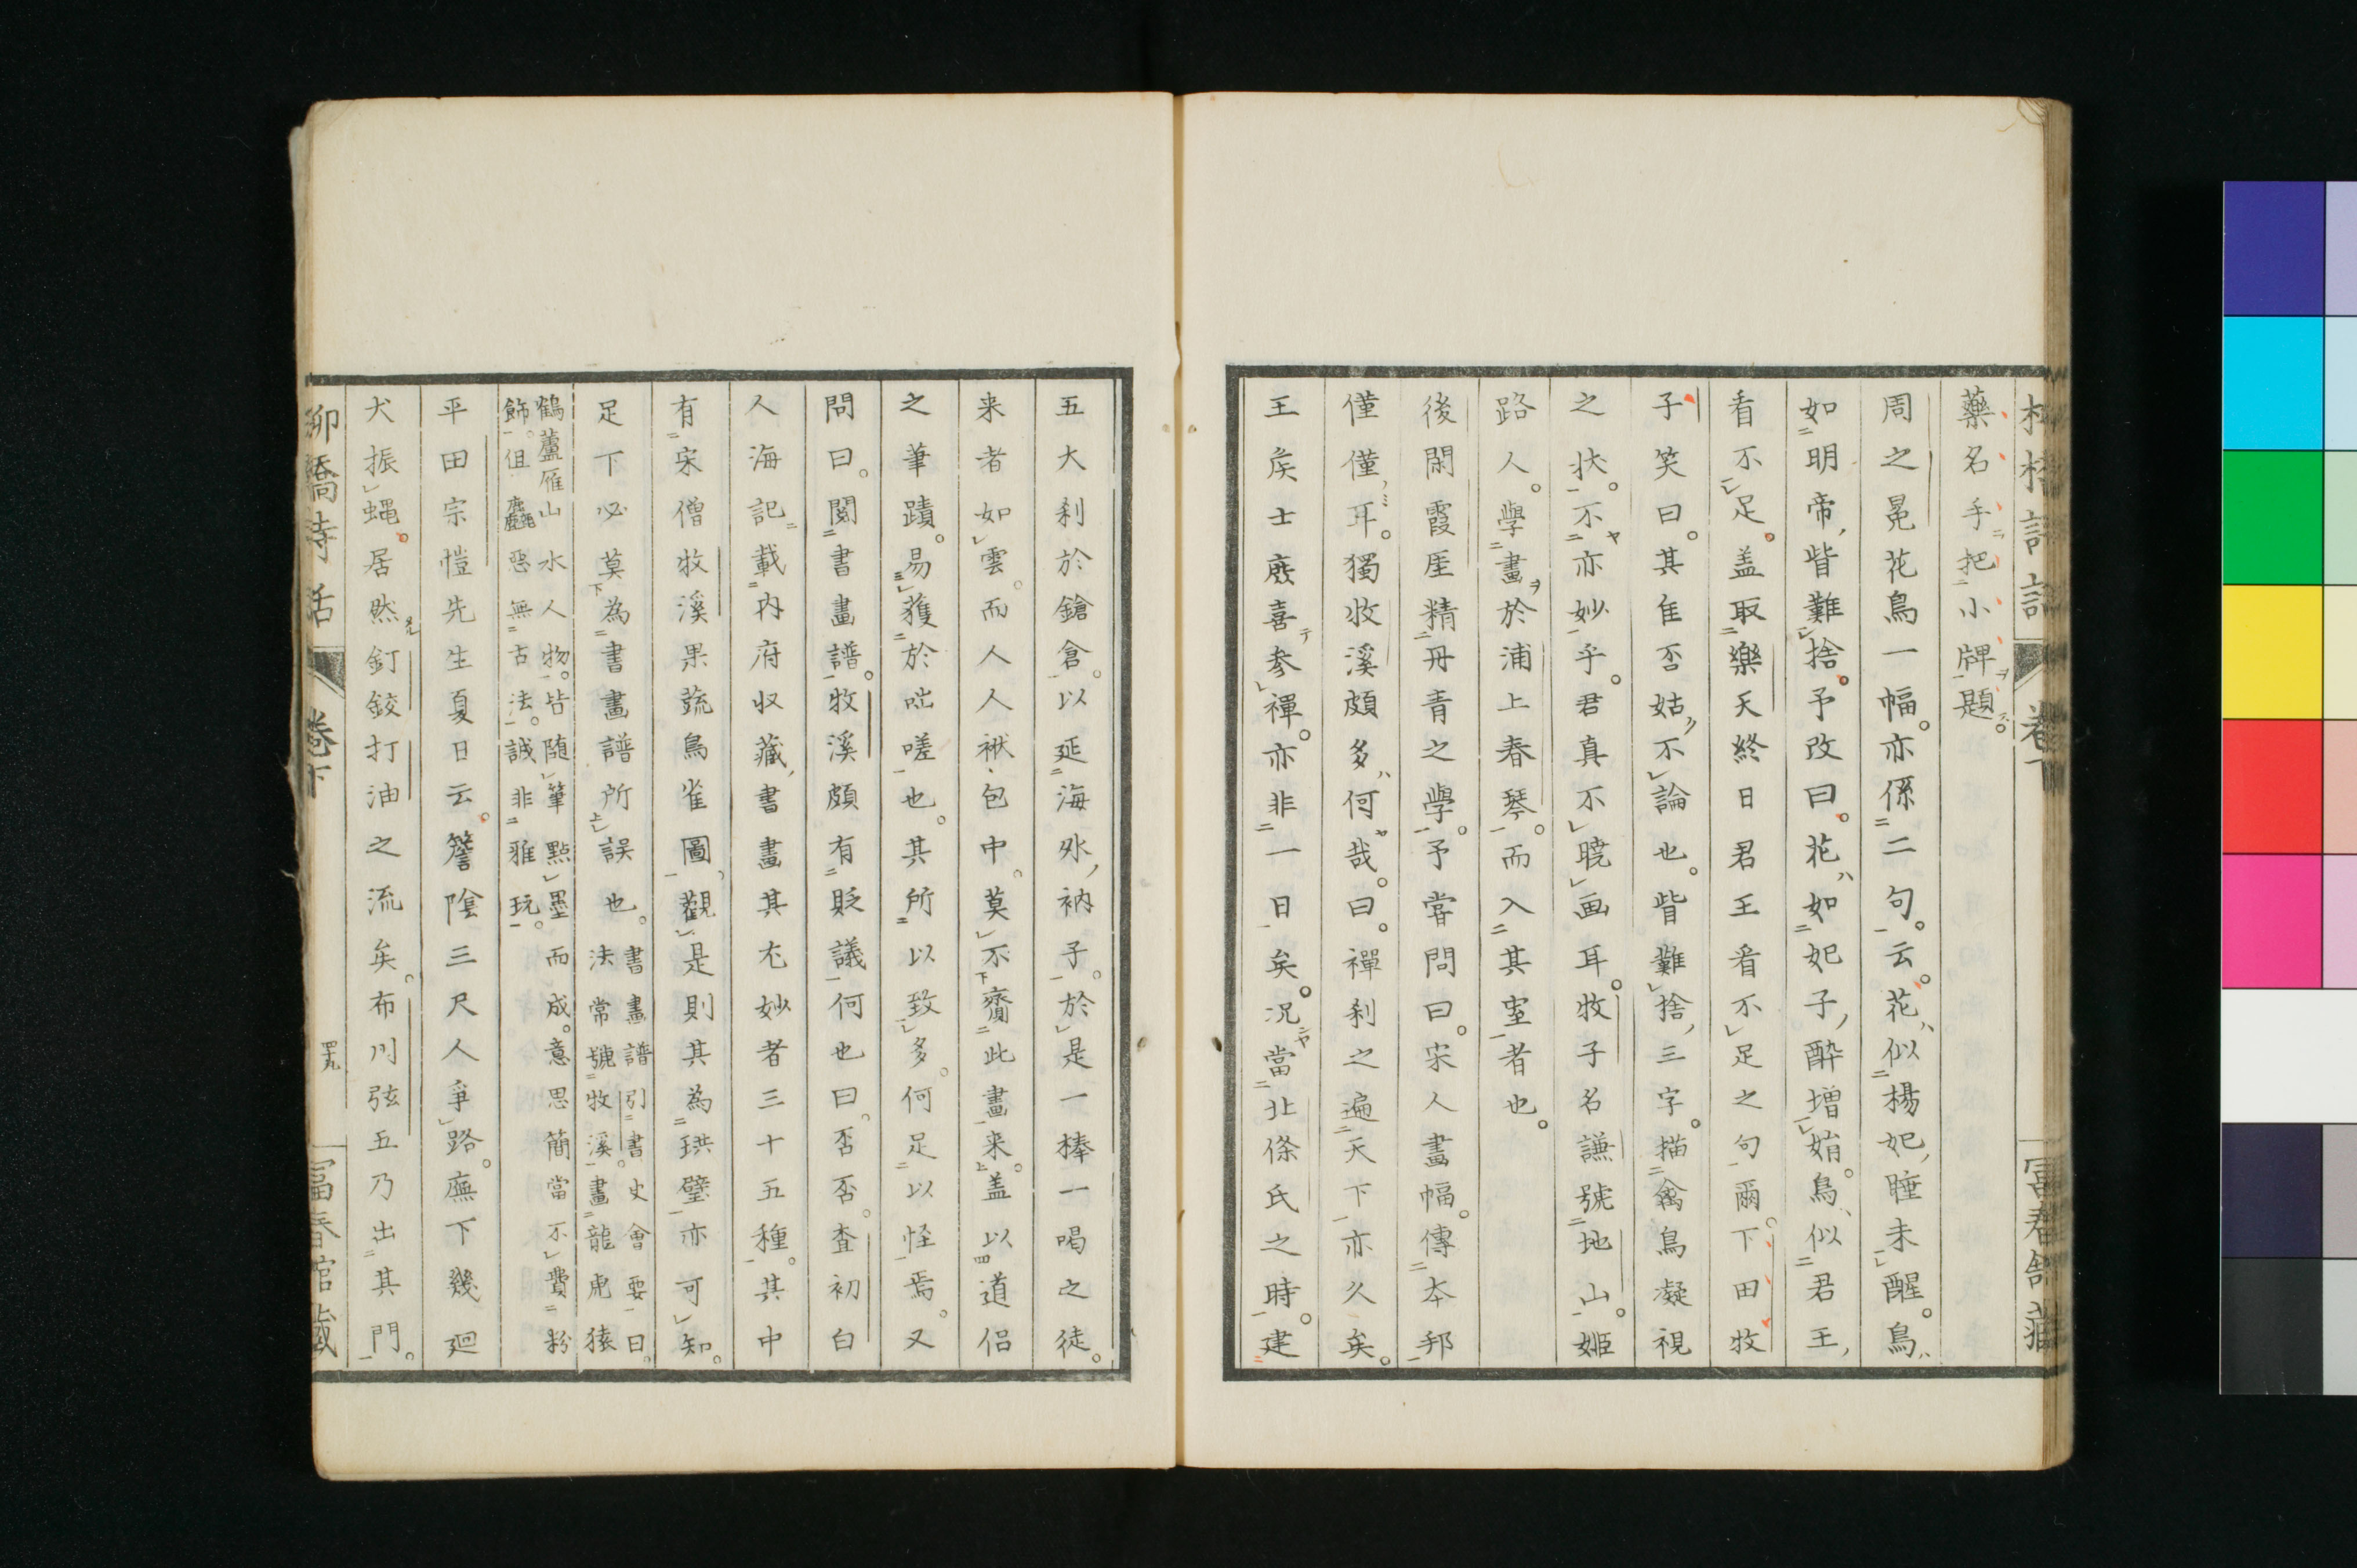 藥名手把小牌題。
周之冕花鳥一幅。亦係二句。云。花ハ似楊妃睡未醒。鳥ハ
如明帝皆難捨。予改曰。花ハ如妃子醉增媚。鳥ハ似君王
看不足。蓋取樂天終日君王看不足之句爾。下田牧
子笑曰。其隹否姑不論也。皆難捨三字。描禽鳥凝視
之狀。不亦妙乎。君真不曉画耳。牧子名謙號地山。姬
路人。學畫於浦上春琴。而入其室者也。
後閑霞厓精丹青之學。予嘗問曰。宋人畫幅。傳本邦
僅僅耳。獨牧溪頗多何哉。曰。禪刹之遍天下亦久矣。
王侯士庶喜參禪。亦非一日矣。況當北條氏之時。建
五大刹於鎗倉。以延海外衲子。於是一棒一喝之徒。
来者如雲。而人人袱包中。莫不齎此畫来。蓋以道侶
之筆蹟。易獲於咄嗟也。其所以致多。何足以怪焉。又
問曰。閱書畫譜。牧溪頗有貶議何也曰。否否。査初白
人海記載內府収藏書畫其尤妙者三十五種。其中
有宋僧牧溪果蔬鳥雀圖。觀是則其為珙璧亦可知。
足下必莫為書畫譜所誤也。書畫譜引書史會要曰。
法常號牧溪。畫龍虎猿
鶴蘆雁山水人物。皆隨筆點墨而成。意思簡當不費粉
飾。但麤惡無古法。誠非雅玩。
平田宗愷先生夏日云。簷陰三尺人爭路。廡下幾廻
犬振蠅。居然釘鉸打油之流矣。布川弦五乃出其門。
柳橋詩話 卷下 四九 冨春館藏